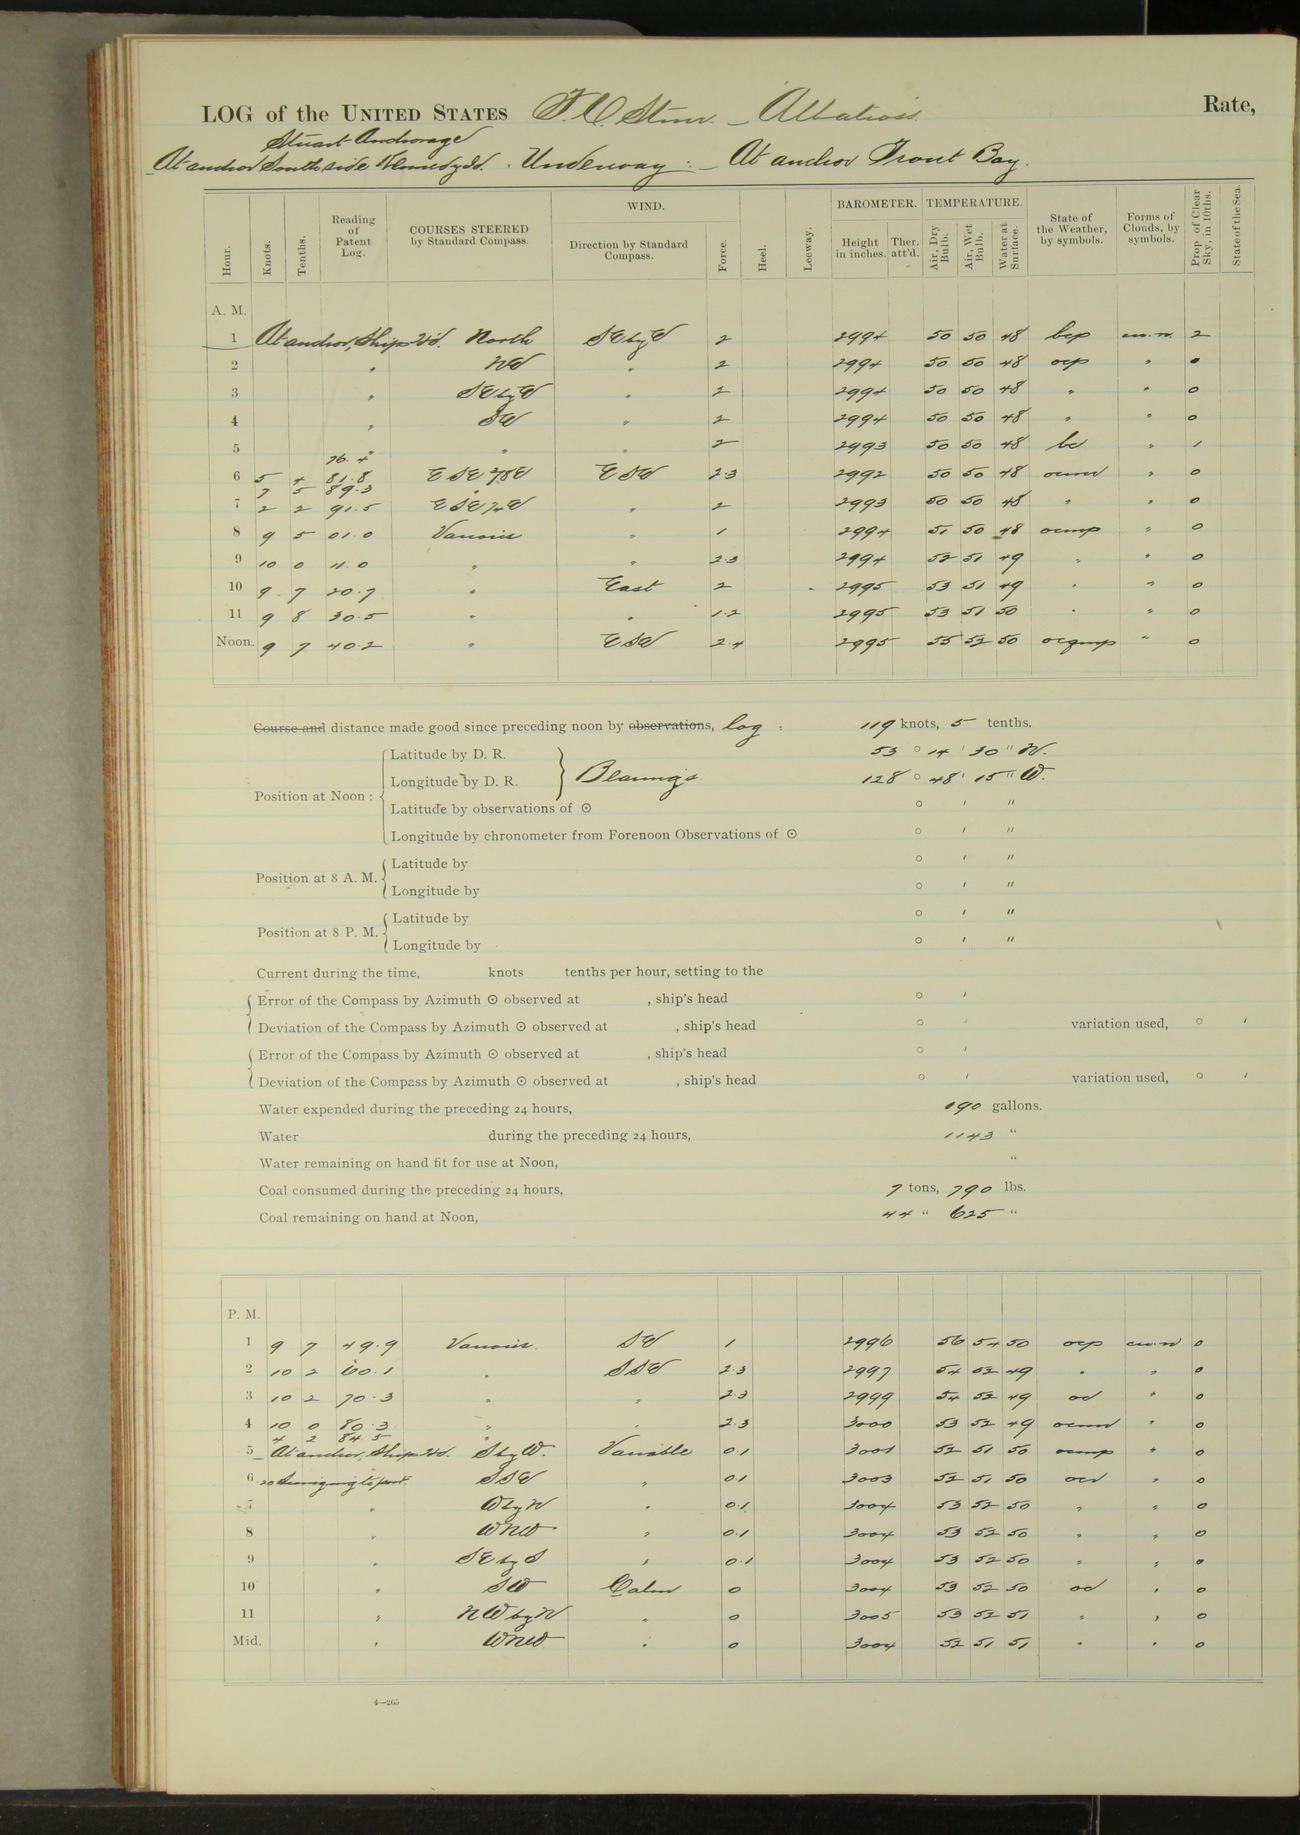 LOG of the UNITED STATES F.C. Stmr. Albatross Rate,
Stuart Anchorage
At anchor South side Kennedy Id. Underway : At anchor Trout Bay.
Hour. Knots. Tenths. Reading of Patent Log. COURSES STEERED by Standard Compass. WIND. Direction by Standard Compass. Force. Heel. Leeway. BAROMETER. Height in inches. Ther. att'd. TEMPERATURE. Air, Dry Bulb. Air, Wet Bulb. Water at Surface. State of the Weather, by symbols. Forms of Clouds, by symbols. Prop. of Clear Sky, in 10ths. State of the Sea.
A. M.
1 At anchor, Ship's h'd. North SE by E 2 2994 50 50 48 bcp cu.n. 2
2 " NE " 2 2994 50 50 48 ocp " 0
3 " SE by E " 2 2994 50 50 48 " " 0
4 " SE " 2 2994 50 50 48 " " 0
5 76.4 " " 2 2993 50 50 48 bc " 1
6 5 4 81.8 ESE 7/8 E ESE 2.3 2992 50 50 48 " 0
7 5 89.3 "
7 2 2 91.5 " 2 2993 50 50 48 " " 0
8 9 5 01.0 Various " 1 2994 51 50 48 ocmp " 0
9 10 0 11.0 " " 2.3 2994 52 51 49 " " 0
10 9 7 20.7 " East 2 2995 53 51 49 " " 0
11 9 8 30.5 " " 1.2 2995 53 51 50 " " 0
Noon. 9 7 40.2 " ESE 2.4 2995 55 52 50 ocqmp " 0
Course and distance made good since preceding noon by observations, log : 119 knots, 5 tenths.
Position at Noon :
Latitude by D. R. 53 ° 14 ' 30 " N.
Longitude by D. R. Bearings 128 ° 48 ' 15 " W.
Latitude by observations of ☉ ° ' "
Longitude by chronometer from Forenoon Observations of ☉ ° ' "
Position at 8 A. M.
Latitude by ° ' "
Longitude by ° ' "
Position at 8 P. M.
Latitude by ° ' "
Longitude by ° ' "
Current during the time, knots tenths per hour, setting to the
Error of the Compass by Azimuth ☉ observed at , ship's head ° '
Deviation of the Compass by Azimuth ☉ observed at , ship's head ° ' variation used, ° '
Error of the Compass by Azimuth ☉ observed at , ship's head ° '
Deviation of the Compass by Azimuth ☉ observed at , ship's head ° ' variation used, ° '
Water expended during the preceding 24 hours, 190 gallons.
Water during the preceding 24 hours, 1143 "
Water remaining on hand fit for use at Noon, "
Coal consumed during the preceding 24 hours, 7 tons, 790 lbs.
Coal remaining on hand at Noon, 44 " 625 "
P. M.
1 9 7 49.9 Various SE 1 2996 56 54 50 ocp cu.n 0
2 10 2 60.1 " SSE 2.3 2997 54 52 49 " " 0
3 10 2 70.3 " " 2.3 2999 54 52 49 od " 0
4 10 0 80.3 " " 2.3 3000 53 52 49 " 0
4 2 84.5 "
5 At anchor, Ship's h'd. S by W. Variable 0.1 3001 52 51 50 ocmp " 0
6 20 Swinging to port. SSE " 0.1 3003 52 51 50 ocd " 0
7 " W by N " 0.1 3004 53 52 50 " " 0
8 " WNW " 0.1 3004 53 52 50 " " 0
9 " SE by S " 0.1 3004 53 52 50 " " 0
10 " SW Calm 0 3004 53 52 50 od " 0
11 " NW by N " 0 3005 53 52 51 " " 0
Mid. " WNW " 0 3004 52 51 51 " " 0
4—265